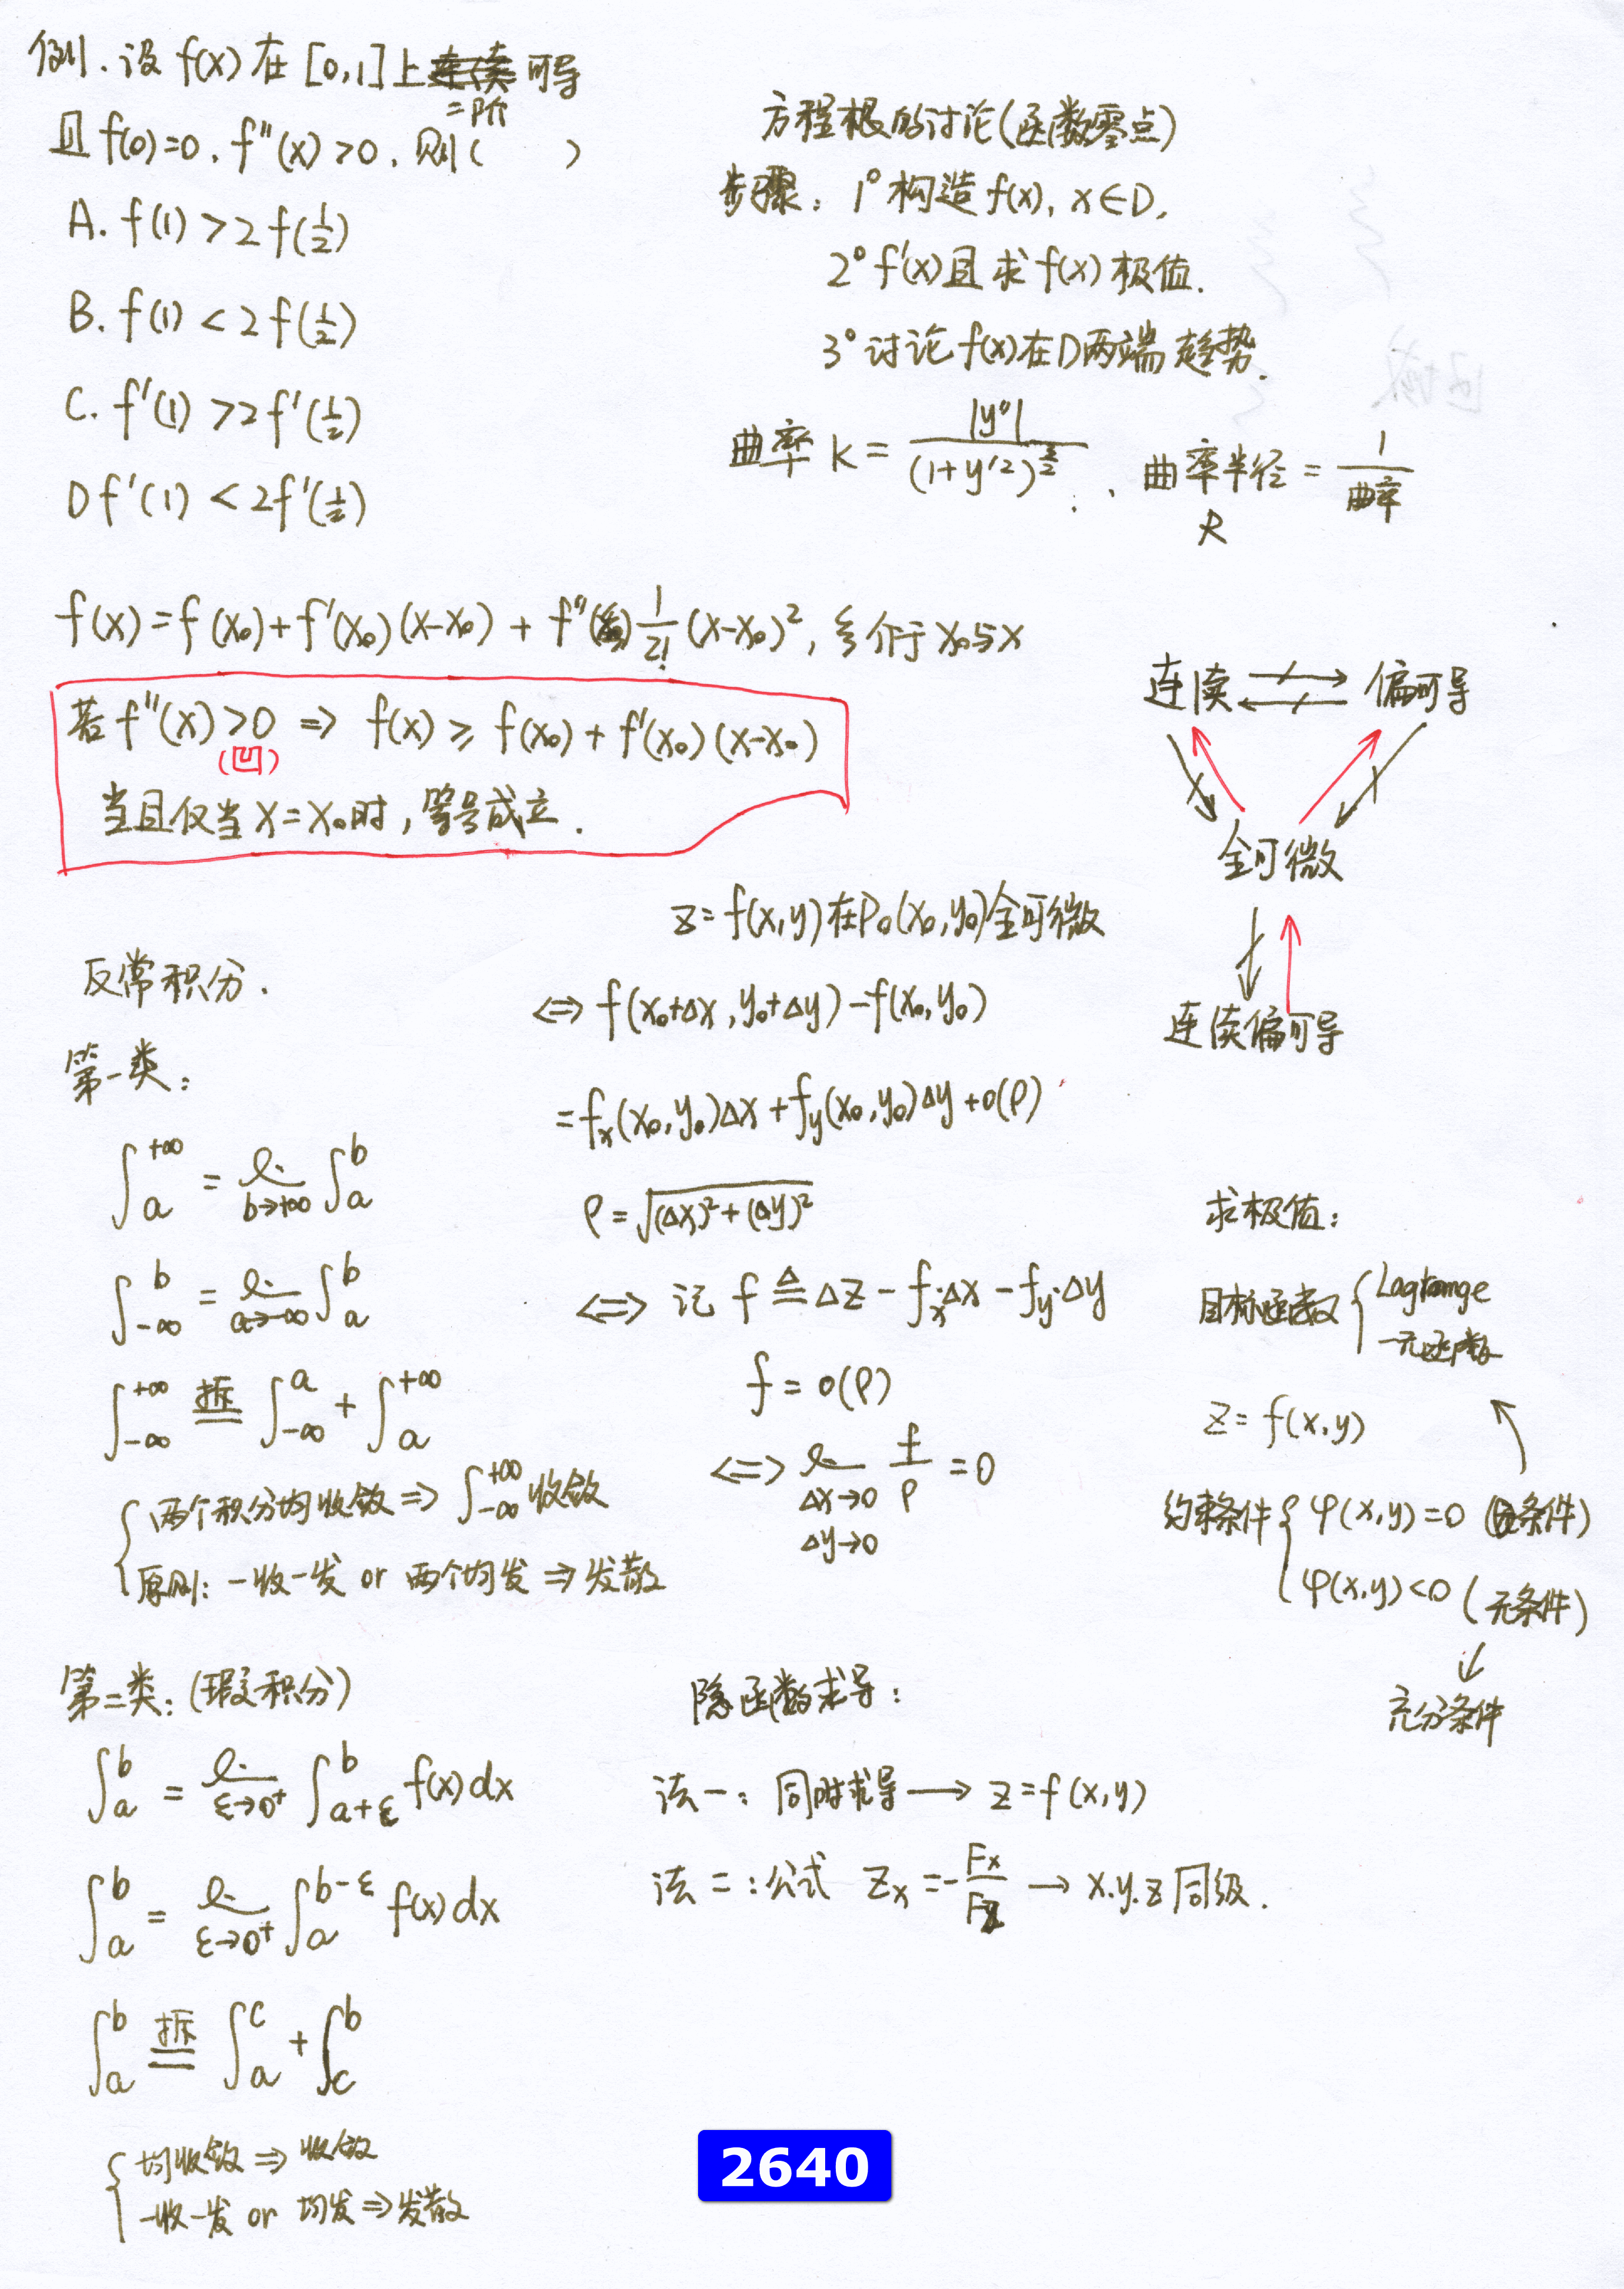 例.设 f(x) 在 [0,1] 上二阶可导
且 f(0)=0, f''(x)>0, 则( )
A. f(1) > 2f(1/2)
B. f(1) < 2f(1/2)
C. f'(1) > 2f'(1/2)
D f'(1) < 2f'(1/2)
方程根的讨论(函数零点)
步骤: 1° 构造 f(x), x∈D,
2° f'(x) 且求 f(x) 极值.
3° 讨论 f(x) 在 D 两端趋势.
曲率 K = |y''| / (1+y'²)^(3/2) , 曲率半径 = 1/曲率
R
f(x) = f(x₀) + f'(x₀)(x-x₀) + f''(ξ) 1/2! (x-x₀)², ξ 介于 x₀与x
若 f''(x) >0 ⇒ f(x) ≥ f(x₀) + f'(x₀)(x-x₀)
(凹)
当且仅当 x=x₀时, 等号成立.
连续 ⇸ ⇷ 偏可导
全可微
连续偏可导
z=f(x,y) 在 P₀(x₀,y₀) 全可微
⇔ f(x₀+Δx, y₀+Δy) - f(x₀,y₀)
= fₓ(x₀,y₀)Δx + f_y(x₀,y₀)Δy + o(ρ)
ρ = √((Δx)²+(Δy)²)
⇔ 记 f ≜ Δz - fₓ·Δx - f_y·Δy
f = o(ρ)
⇔ l. f/ρ = 0
Δx→0
Δy→0
反常积分.
第一类:
∫_a^{+∞} = l._{b→+∞} ∫_a^b
∫_{-∞}^b = l._{a→-∞} ∫_a^b
∫_{-∞}^{+∞} 拆= ∫_{-∞}^a + ∫_a^{+∞}
{ 两个积分均收敛 ⇒ ∫_{-∞}^{+∞} 收敛
原则: 一收一发 or 两个均发 ⇒ 发散
求极值:
目标函数 { Lagrange
一元函数
z = f(x,y)
约束条件 { φ(x,y)=0 (条件)
φ(x,y)<0 (无条件)
充分条件
第二类: (瑕积分)
∫_a^b = l._{ε→0⁺} ∫_{a+ε}^b f(x)dx
∫_a^b = l._{ε→0⁺} ∫_a^{b-ε} f(x)dx
∫_a^b 拆= ∫_a^c + ∫_c^b
{ 均收敛 ⇒ 收敛
一收一发 or 均发 ⇒ 发散
隐函数求导:
法一: 同时求导 → z=f(x,y)
法二: 公式 Zₓ = -Fx/Fz → x.y.z 同级.
2640